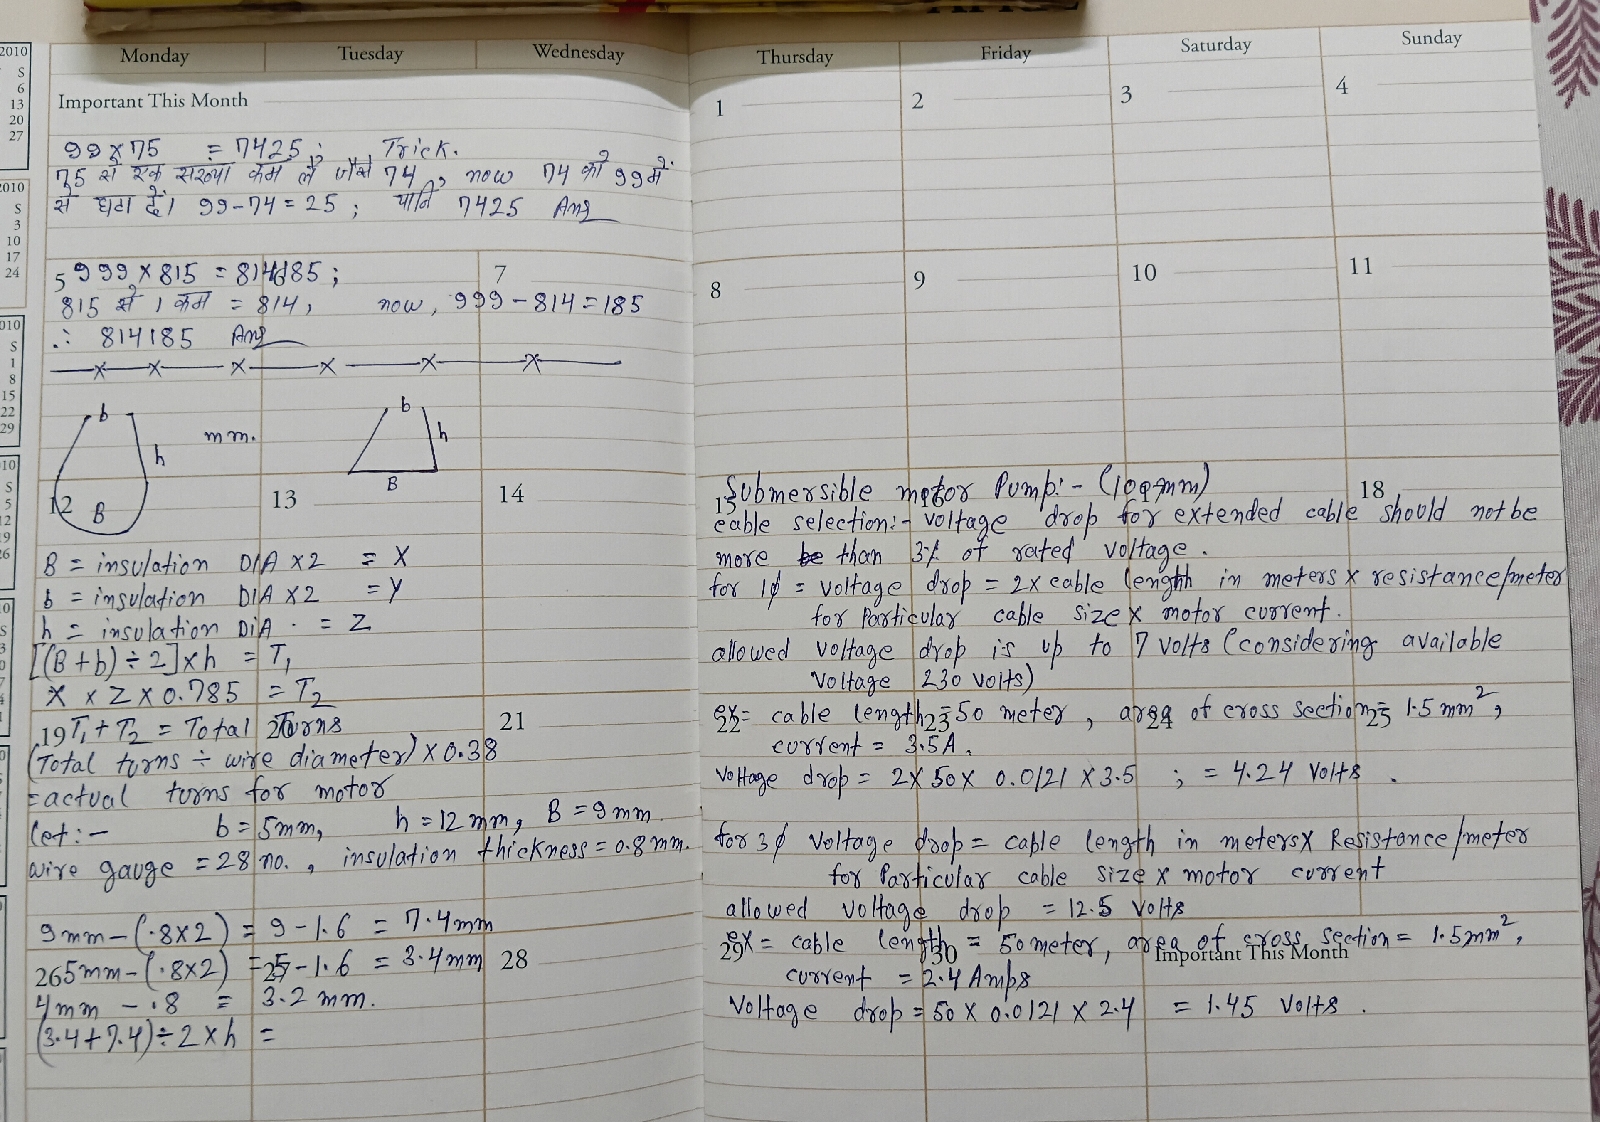 Monday Tuesday Wednesday
Important This Month
99 x 75 = 7425; Trick.
75 से एक संख्या कम लें जैसे 74, now 74 को 99 में
से घटा दें। 99-74 = 25; यानि 7425 Ans
5 7
999 x 815 = 814185;
815 से 1 कम = 814, now, 999 - 814 = 185
∴ 814185 Ans
b b
mm. h
h
B
12 B 13 14
B = insulation DIA x2 = X
b = insulation DIA x2 = Y
h = insulation DIA . = Z
[(B + b) ÷ 2] x h = T₁
X x Z x 0.785 = T₂
19 21
T₁ + T₂ = Total Turns
(Total turns ÷ wire diameter) x 0.38
= actual turns for motor
Let :- b = 5mm, h = 12 mm, B = 9 mm.
wire gauge = 28 no. , insulation thickness = 0.8 mm.
9mm - (.8x2) = 9 - 1.6 = 7.4mm
26 28
5mm - (.8x2) = 5 - 1.6 = 3.4mm
4mm - .8 = 3.2 mm.
(3.4 + 7.4) ÷ 2 x h =
Thursday Friday Saturday Sunday
1 2 3 4
8 9 10 11
15 18
Submersible motor Pump:- (100mm)
cable selection:- voltage drop for extended cable should not be
more be than 3% of rated voltage.
for 1φ = voltage drop = 2 x cable length in meters x resistance/meter
for Particular cable size x motor current.
allowed voltage drop is up to 7 volts (considering available
Voltage 230 volts)
22 23 24 25
ex = cable length = 50 meter, area of cross section = 1.5 mm²,
current = 3.5A,
Voltage drop = 2 x 50 x 0.0121 x 3.5 ; = 4.24 Volts .
for 3φ Voltage drop = cable length in meters x Resistance/meter
for Particular cable size x motor current
allowed voltage drop = 12.5 volts
29 30
ex = cable length = 50 meter, area of cross section = 1.5mm²,
Important This Month
current = 2.4 Amps
Voltage drop = 50 x 0.0121 x 2.4 = 1.45 Volts .
2010
S
6
13
20
27
2010
S
3
10
17
24
010
S
1
8
15
22
29
10
S
5
12
19
26